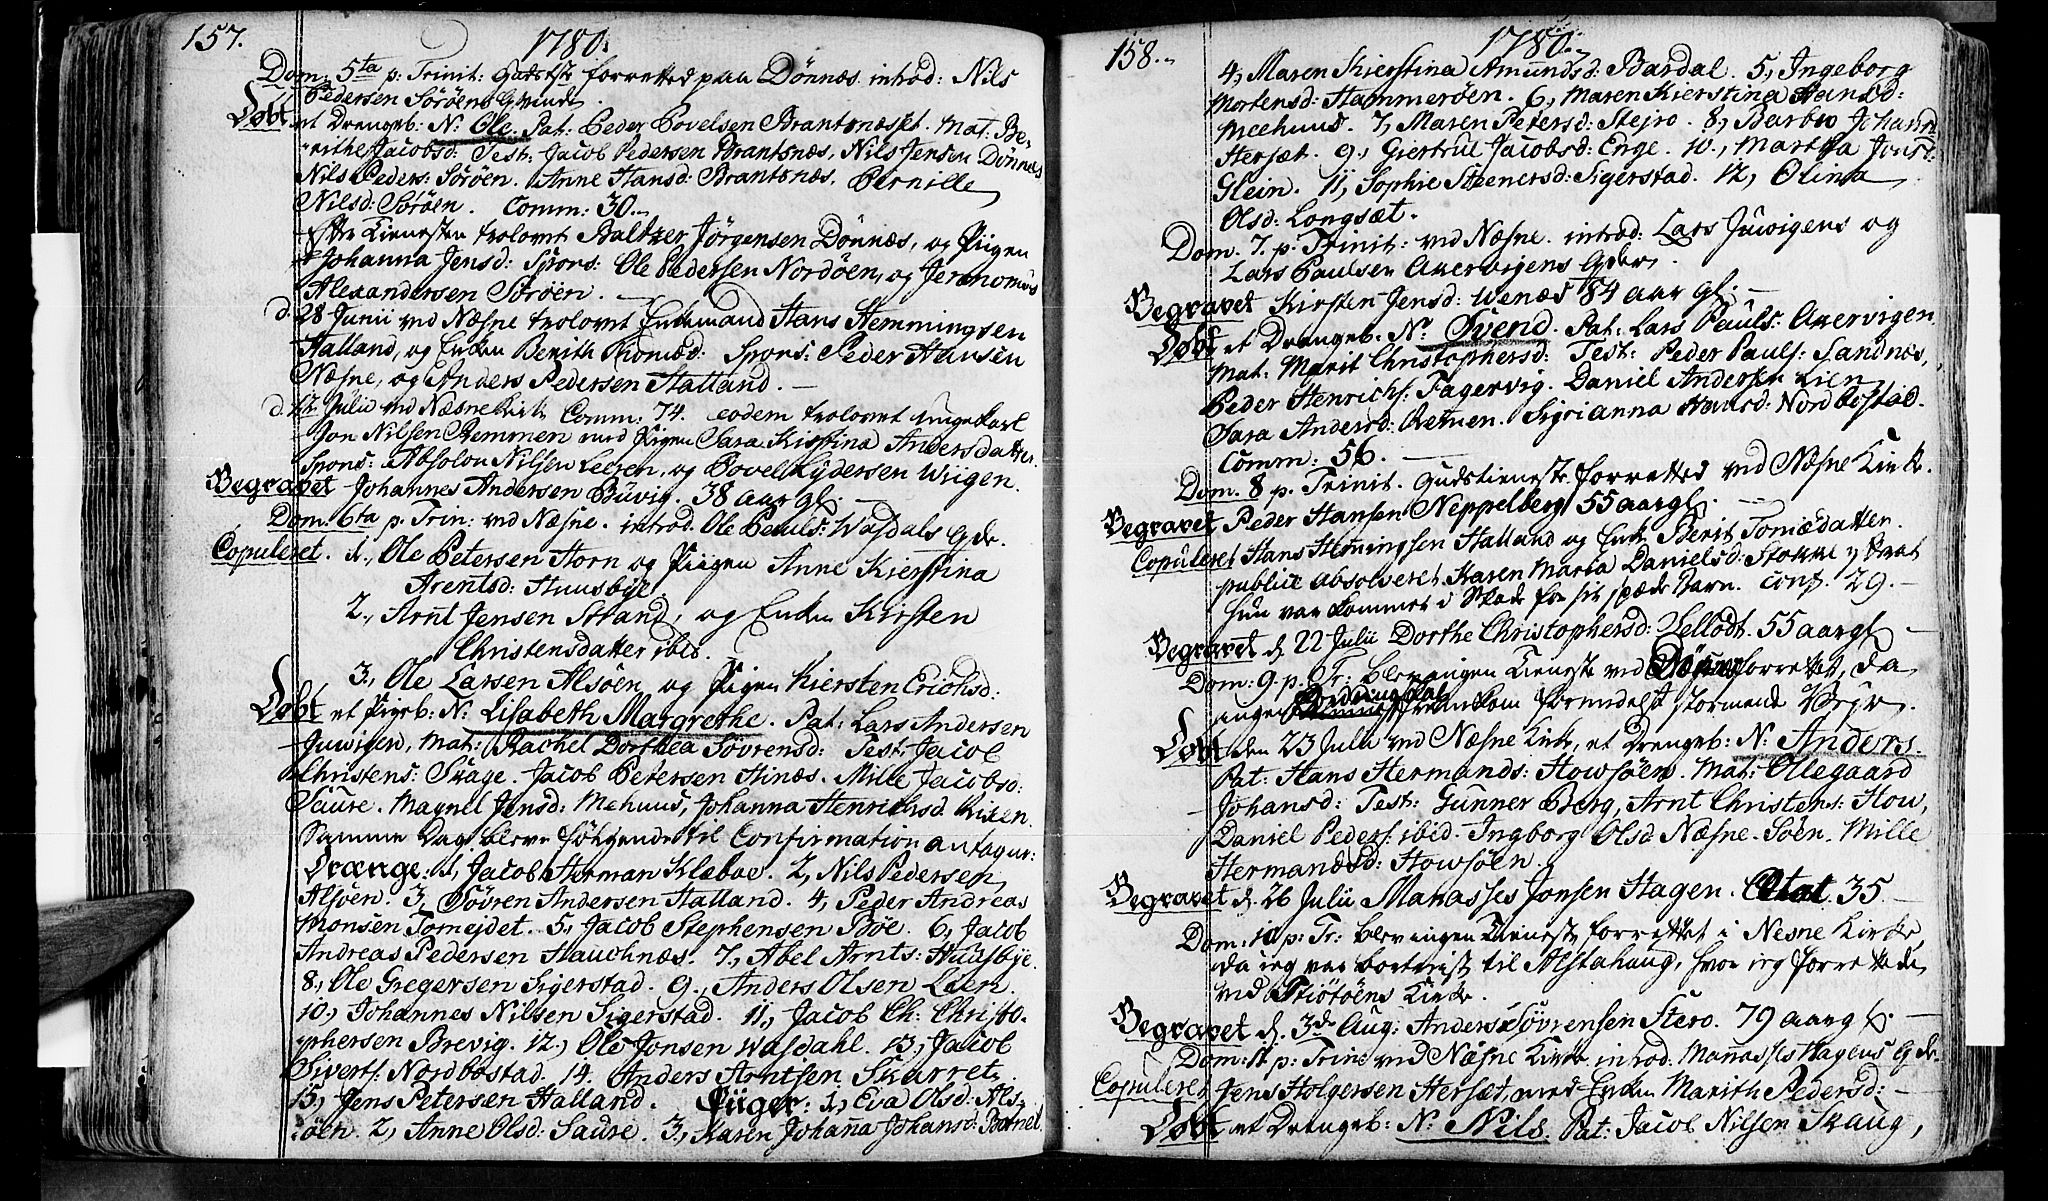 157.
1780.
Dom: 5ta p: Trinit: Gudstst forretted paa Dönnes. introd: Nils
Pedersen Söröens Qvinde.
Döbt et Drengeb: N: Ole. Pat: Peder Povelsen Brantsnæsset. Mat: Be-
rithe Jacobsd: Test: Jacob Pedersen Brantsnæs, Nils Jensen Dönnes
Nils Peders: Söröen. Anne Hansd: Brantsnæs, Pernille
Nilsd: Söröen. Comm: 30.
Efter Tienesten trolovet Baltzer Jörgensen Dönnæs, og Piigen
Johanna Jensd: Spons: Ole Pedersen Nordöen, og Jeronomus
Alexandersen Söröen.
d. 28 Junii ved Næsne trolovet Enkemand Hans Hemmingsen
Halland, og Enken Berith Thomæd: Spons: Peder Hansen
Næsne, og Anders Pedersen Halland.
d. 12 Julii ved Næsne Kirk Comm: 74. eodem trolovet ungekarl
Jon Nilsen Remmen med Pigen Sara Kirstina Andersdatter
Spons: Absolon Nilsen Leeren, og Povel Hydersen Wiigen.
Begravet Johannes Andersen Büvig. 38 aar gl.
Dom. 6ta p. Trin: ved Næsne. introd. Ole Pauls: Wasdals Qde.
Copuleret. 1., Ole Petersen Horn og Piigen Anne Kierstina
Arentsd: Huusbye.
2., Arnt Jensen Strand, og Enken Kirsten
Christensdatter ibid.
3., Ole Larsen Alsöen og Pigen Kiersten Erichsd:
Döbt et Pigeb: N: Lisabeth Margrethe. Pat: Lars Andersen
Juwigen, Mat: Rachel Dorthea Sövrensd: Test: Jacob
Christens: Skage. Jacob Petersen Hinæs. Mille Jacobsd:
Saure. Magnel Jensd: Mehuus, Johanna Henrichsd.
Samme Dag bleve fölgende til Confirmation antagne:
Drænge: 1, Jacob Herman Klæboe. 2, Nils Pedersen
Alsöen. 3, Sövren Andersen Halland. 4, Peder Andreas
Monsen Tomejdet. 5., Jacob Stephensen Böe. 6, Jacob
Andreas Pedersen Hauchnæs. 7, Abel Arnts: Huusbye.
8, Ole Gregersen Sigerstad. 9., Anders Olsen Lien.
10., Johannes Nilsen Sigerstad. 11., Jacob Ch: Christo-
phersen Brevig. 12., Ole Jonsen Wasdahl. 13, Jacob
Siverts: Nordbostad. 14. Anders Arntsen Skarret.
15, Jens Petersen Halland. Piiger: 1, Eva Olsd: Als-
öen. 2, Anne Olsd: Saure. 3, Karen Johana Johansd: Bornet
158.
1780.
4, Maren Kierstina Amundsd: Bardal. 5, Ingeborg
Mortensd: Hammeröen. 6, Maren Kierstina Hansd:
Meehuus. 7, Maren Petersd: Stejro. 8, Barbro Johann
Hersæt. 9, Giertrue Jacobsd: Enge. 10., Martha Jonsd:
Glein. 11, Sophie Steenersd: Sigerstad. 12, Olina
Olsd: Longsæt.
Dom. 7. p. Trinit: ved Næsne. introd: Lars Juwigens og
Lars Paulsen Akervigens Qder.
Begravet Kirsten Jensd: Wenæs 84 aar gl.
Döbt et Drengeb. N. Svend. Pat: Lars Pauls: Akervigen
Mat: Marit Christophersd: Test: Peder Pauls: Sandnes,
Peder Henrichs: Fagervig. Daniel Andersen Lien,
Sara Andersd: Remen. Sigrianna Hansd: Nordbostad.
Comm: 56.
Dom. 8 p. Trinit. Gudstieneste forretted ved Næsne Kirke.
Begravet Peder Hansen Neppelberg 55 aar gl.
Copuleret Hans Hemingsen Halland og Enk. Berit Tomædatter.
publice absolveret Karen Maria Danielsd: Stokke
hun var kommet i Skade for sit spæde Barn. Conf. 29.
Begravet d. 22 Julii Dorthe Christophersd: Zellodt. 55 aar gl
Dom: 9 p. Tr: blev ingen Tieneste ved forrettet, da
ingen frem kom formedelst stormende Veyr.
Döbt den 23 Julii ved Næsne Kirk, et Drengeb: N: Anders.
Pat: Hans Hermands: Howsöen. Mat: Olegaard
Johansd: Test: Gunner Berg, Arnt Christens: How,
Daniel Peders: ibid. Ingborg Olsd Næsne-Söen. Mille
Hermandsd: Howsöen.
Begravet d. 26 Julii Manasses Jonsen Hagen. Ætat. 35.
Dom: 10 p: Tr: blev ingen Tieneste forrettet i Nesne Kirke,
da jeg var bortreist til Alstahaug, hvor jeg forrettede
ved Tiötöens Kirke.
Begravet d. 3de Aug: Anders Sövrensen Stero. 79 aar gl.
Dom: 11 p: Trin: ved Næsne Kirke introd: Manasses Hagens Qde.
Copuleret Jens Holgersen Hersæt, med Enken Marith Pedersd:
Döbt et Drengeb: N: Nils. Pat: Jacob Nilsen Skaug,